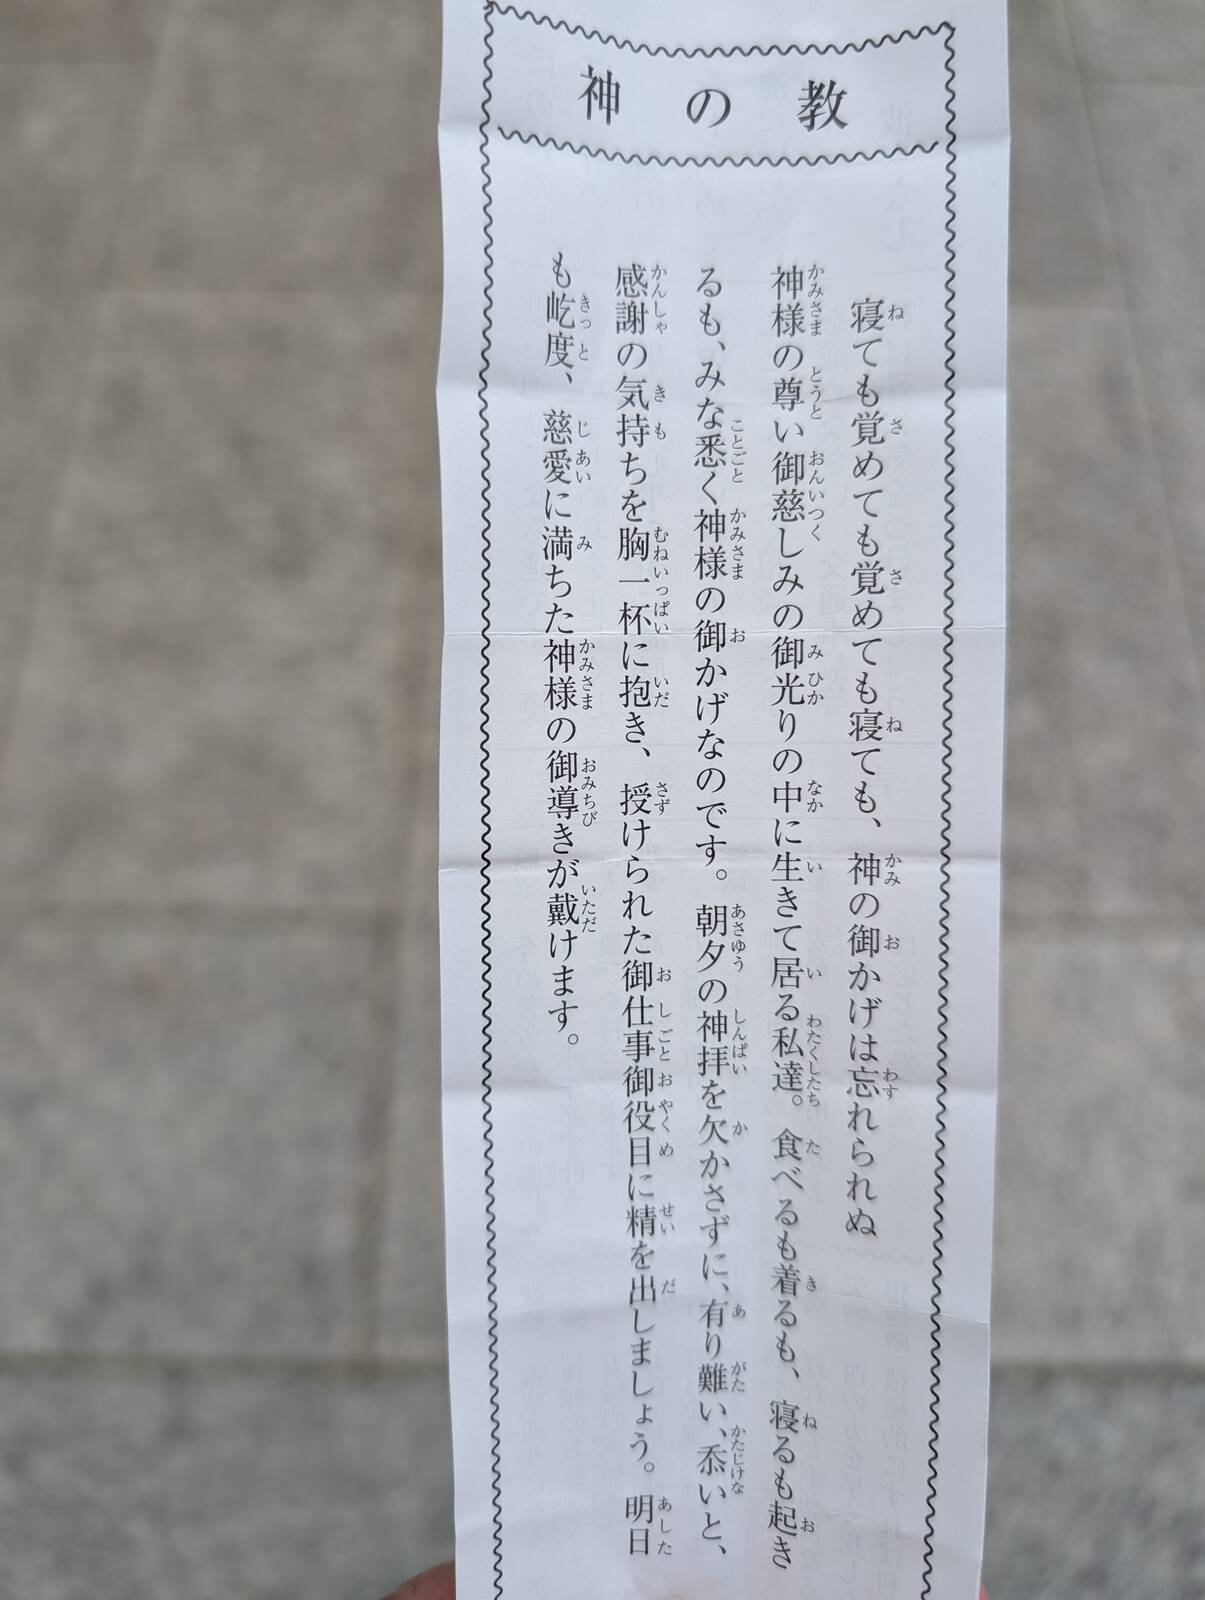 神の教
寝ても覚めても覚めても寝ても、神の御かげは忘れられぬ
神様の尊い御慈しみの御光りの中に生きて居る私達。食べるも着るも、寝るも起き
るも、みな悉く神様の御かげなのです。朝夕の神拝を欠かさずに、有り難い、忝いと、
感謝の気持ちを胸一杯に抱き、授けられた御仕事御役目に精を出しましょう。明日
も屹度、慈愛に満ちた神様の御導きが戴けます。